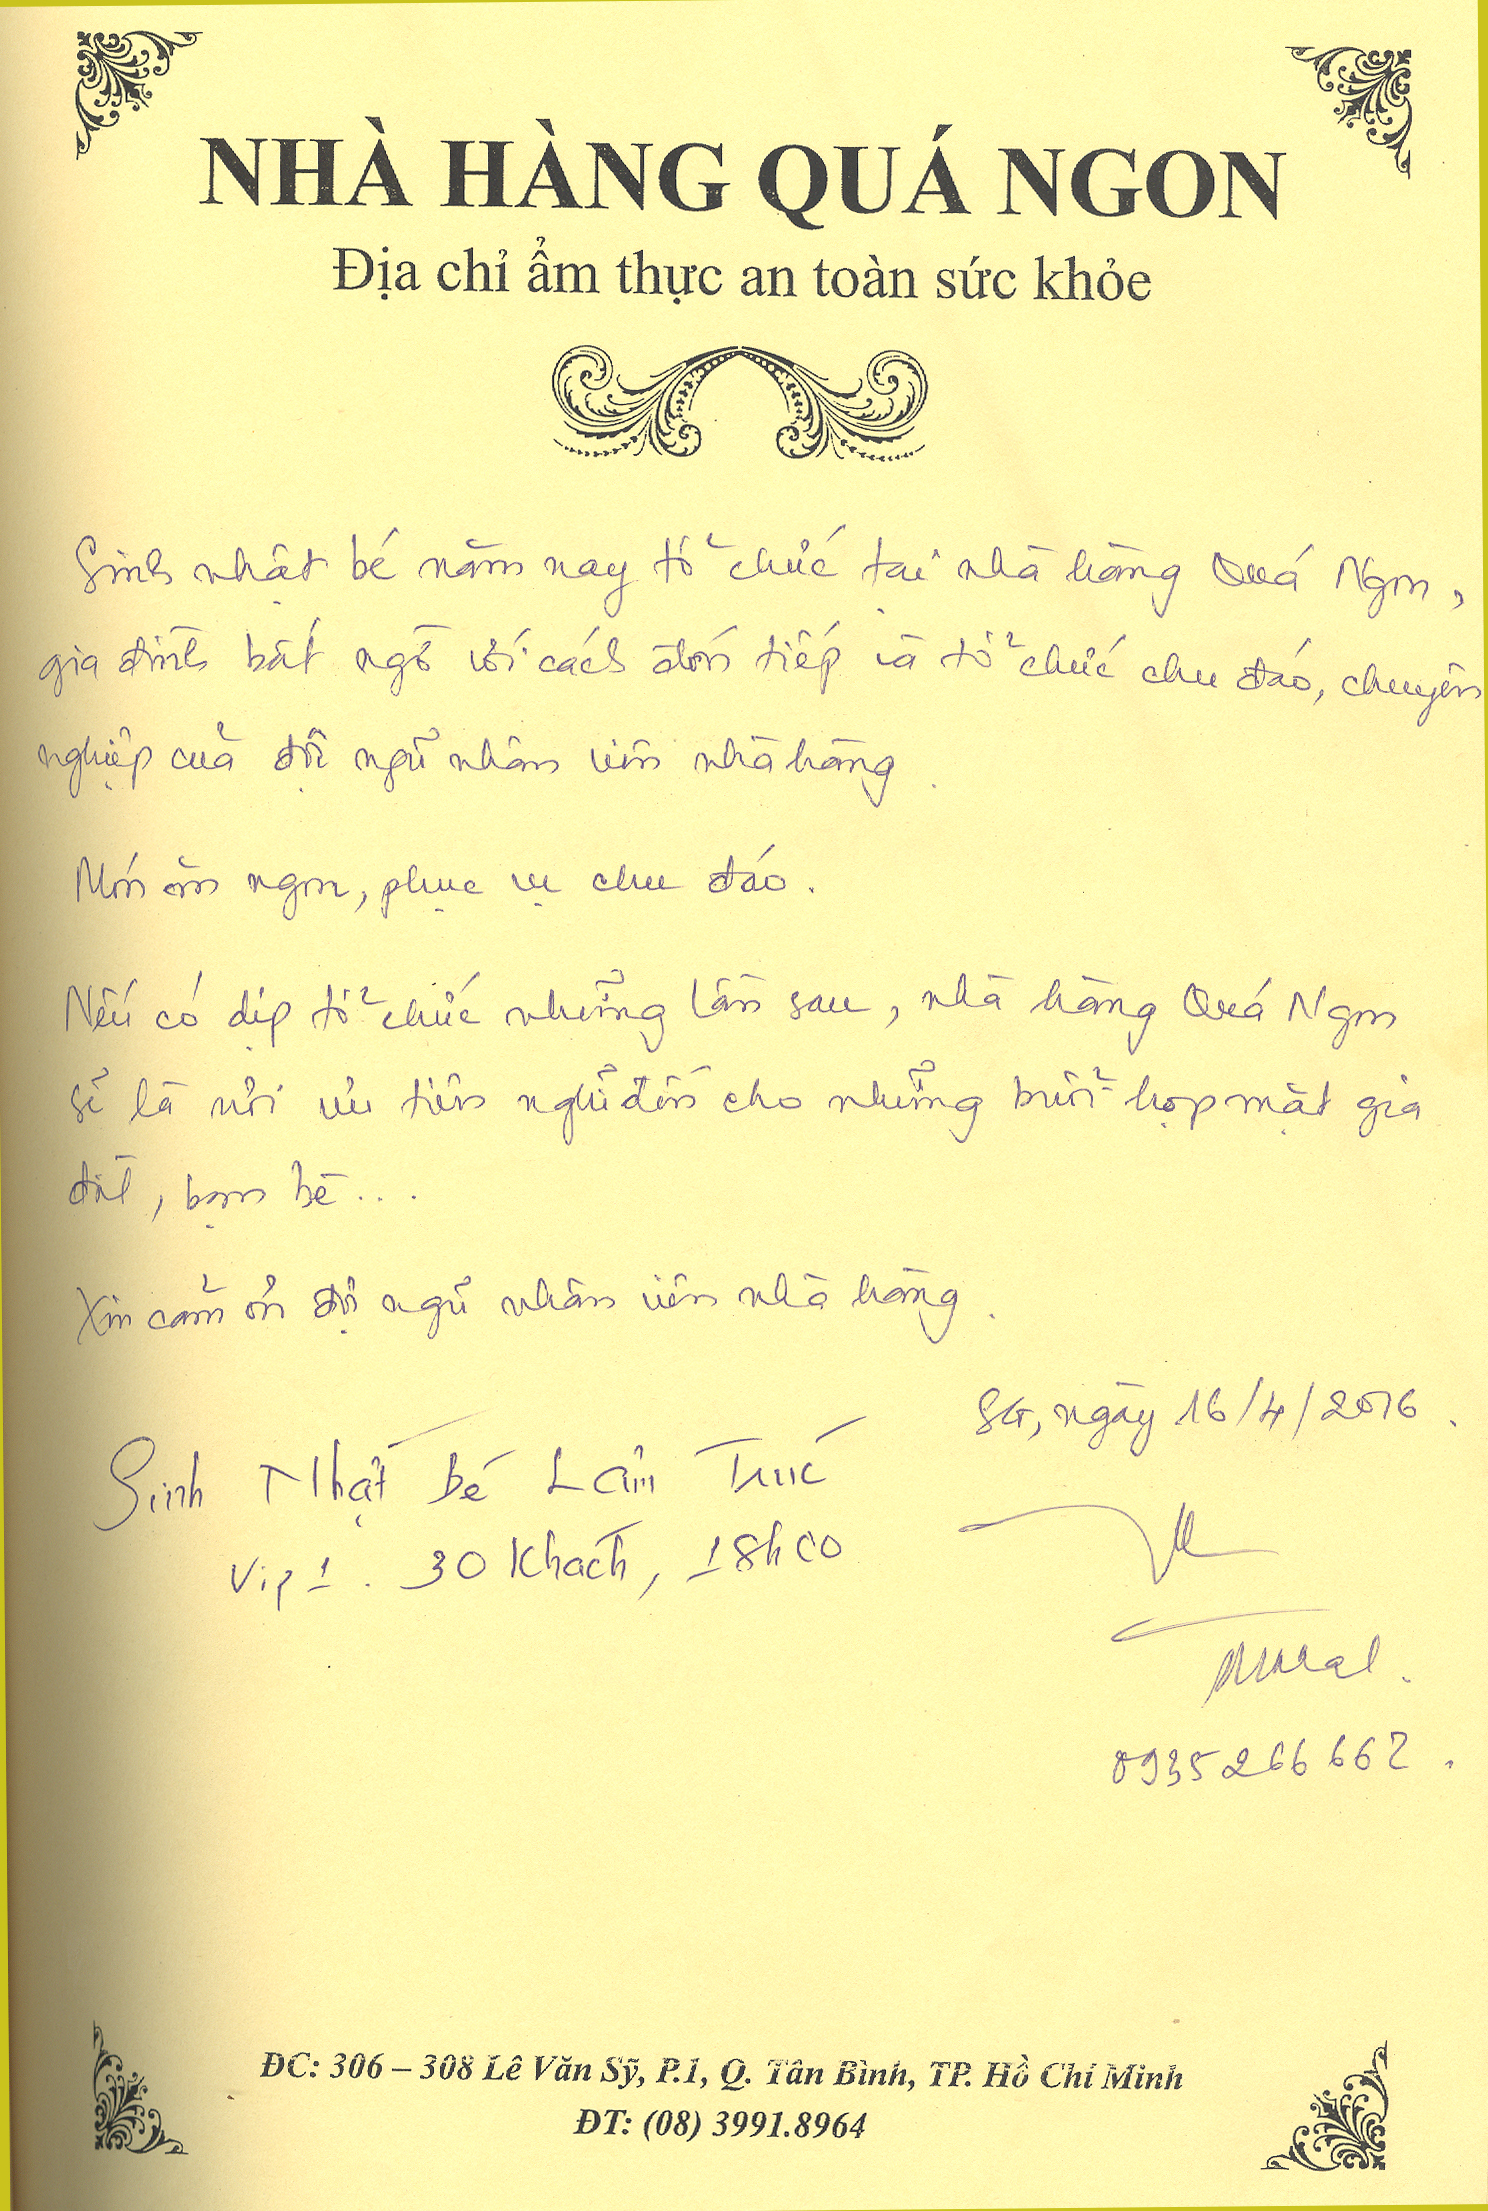 NHÀ HÀNG QUÁ NGON
Địa chỉ ẩm thực an toàn sức khỏe
Sinh nhật bé năm nay tổ chức tại nhà hàng Quá Ngon,
gia đình bất ngờ với cách đón tiếp và tổ chức chu đáo, chuyên
nghiệp của đội ngũ nhân viên nhà hàng.
Món ăn ngon, phục vụ chu đáo.
Nếu có dịp tổ chức những lần sau, nhà hàng Quá Ngon
sẽ là nơi ưu tiên nghĩ đến cho những buổi họp mặt gia
đình, bạn bè...
Xin cảm ơn đội ngũ nhân viên nhà hàng.
SG, ngày 16/4/2016.
Sinh Nhật bé Lam Trúc
Vip 1. 30 Khách, 18h00
0935266662.
ĐC: 306 – 308 Lê Văn Sỹ, P.1, Q. Tân Bình, TP. Hồ Chí Minh
ĐT: (08) 3991.8964